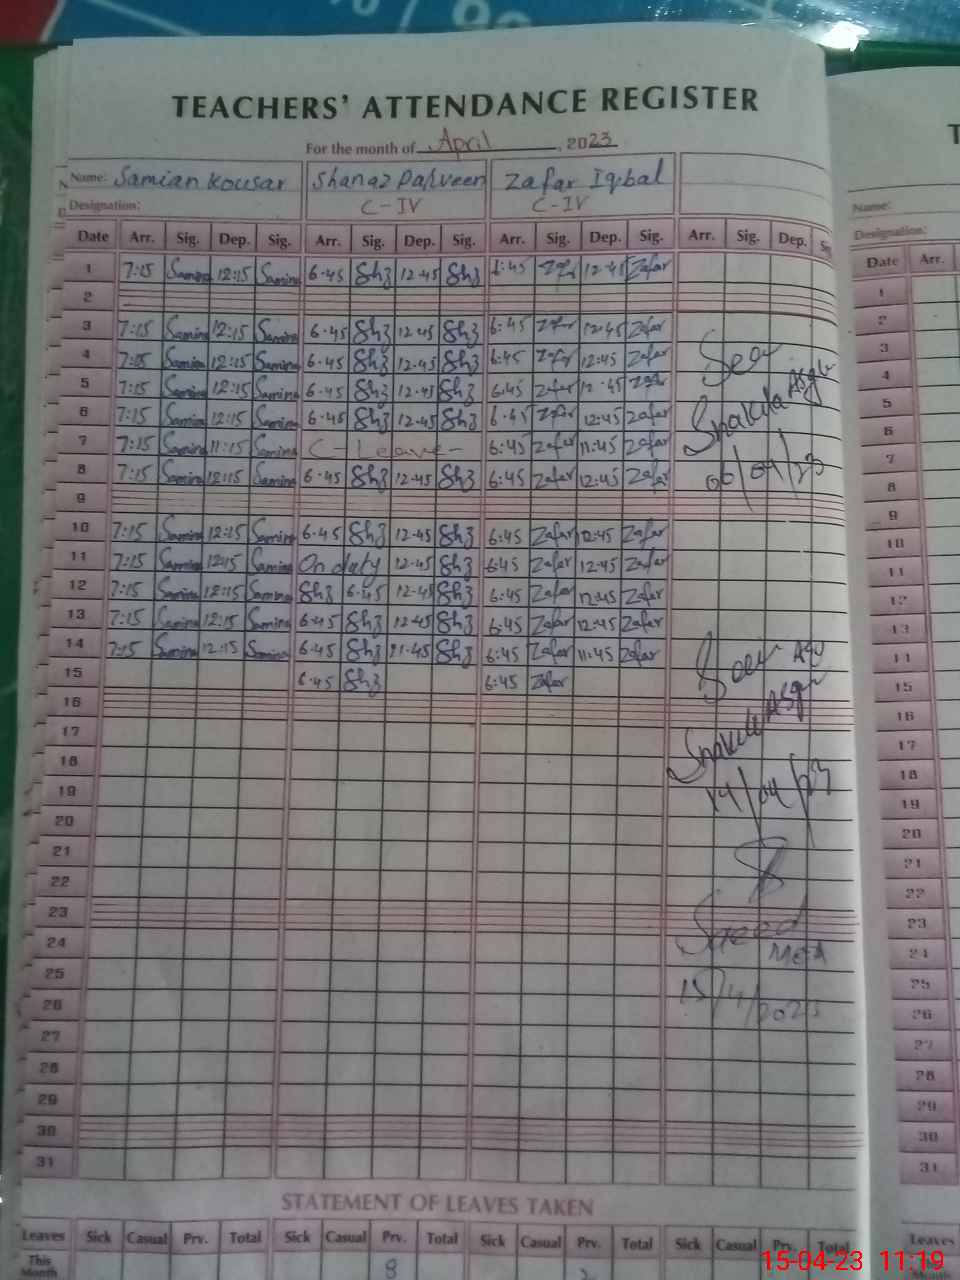 % 
TEACHERS' ATTENDANCE REGISTER
For the month of April, 2023
Name: Samian Kousar Shanaz Parveen Zafar Iqbal
Designation: C-IV C-IV
Date Arr. Sig. Dep. Sig. Arr. Sig. Dep. Sig. Arr. Sig. Dep. Sig. Arr. Sig. Dep.
1 7:15 Samina 12:15 Samina 6.45 Shz 12.45 Shz 6:45 Zafar 12:45 Zafar
2
3 7:15 Samina 12:15 Samina 6.45 Shz 12.45 Shz 6:45 Zafar 12:45 Zafar
4 7:15 Samina 12:15 Samina 6.45 Shz 12.45 Shz 6:45 Zafar 12:45 Zafar
5 7:15 Samina 12:15 Samina 6.45 Shz 12.45 Shz 6:45 Zafar 12:45 Zafar
6 7:15 Samina 12:15 Samina 6.45 Shz 12.45 Shz 6:45 Zafar 12:45 Zafar
7 7:15 Samina 11:15 Samina C-Leave- 6:45 Zafar 11:45 Zafar
8 7:15 Samina 12:15 Samina 6.45 Shz 12.45 Shz 6:45 Zafar 12:45 Zafar
9
10 7:15 Samina 12:15 Samina 6.45 Shz 12.45 Shz 6:45 Zafar 12:45 Zafar
11 7:15 Samina 12:15 Samina On duty 12.45 Shz 6:45 Zafar 12:45 Zafar
12 7:15 Samina 12:15 Samina Shz 6.45 12.45 Shz 6:45 Zafar 12:45 Zafar
13 7:15 Samina 12:15 Samina 6.45 Shz 12.45 Shz 6:45 Zafar 12:45 Zafar
14 7:15 Samina 12:15 Samina 6.45 Shz 11.45 Shz 6:45 Zafar 11:45 Zafar
15 6.45 Shz 6:45 Zafar
16
17
18
19
20
21
22
23
24
25
26
27
28
29
30
31
Seen
Shakila Asghar
06/04/23
Seen
Shakila Asghar
14/04/23
Saeed
MEA
15/4/2023
STATEMENT OF LEAVES TAKEN
Leaves Sick Casual Prv. Total Sick Casual Prv. Total Sick Casual Prv. Total Sick Casual Prv. Total
This Month 8
T
Name:
Designation:
Date Arr.
1
2
3
4
5
6
7
8
9
10
11
12
13
14
15
16
17
18
19
20
21
22
23
24
25
26
27
28
29
30
31
Leaves
This
Month
15-04-23 11:19